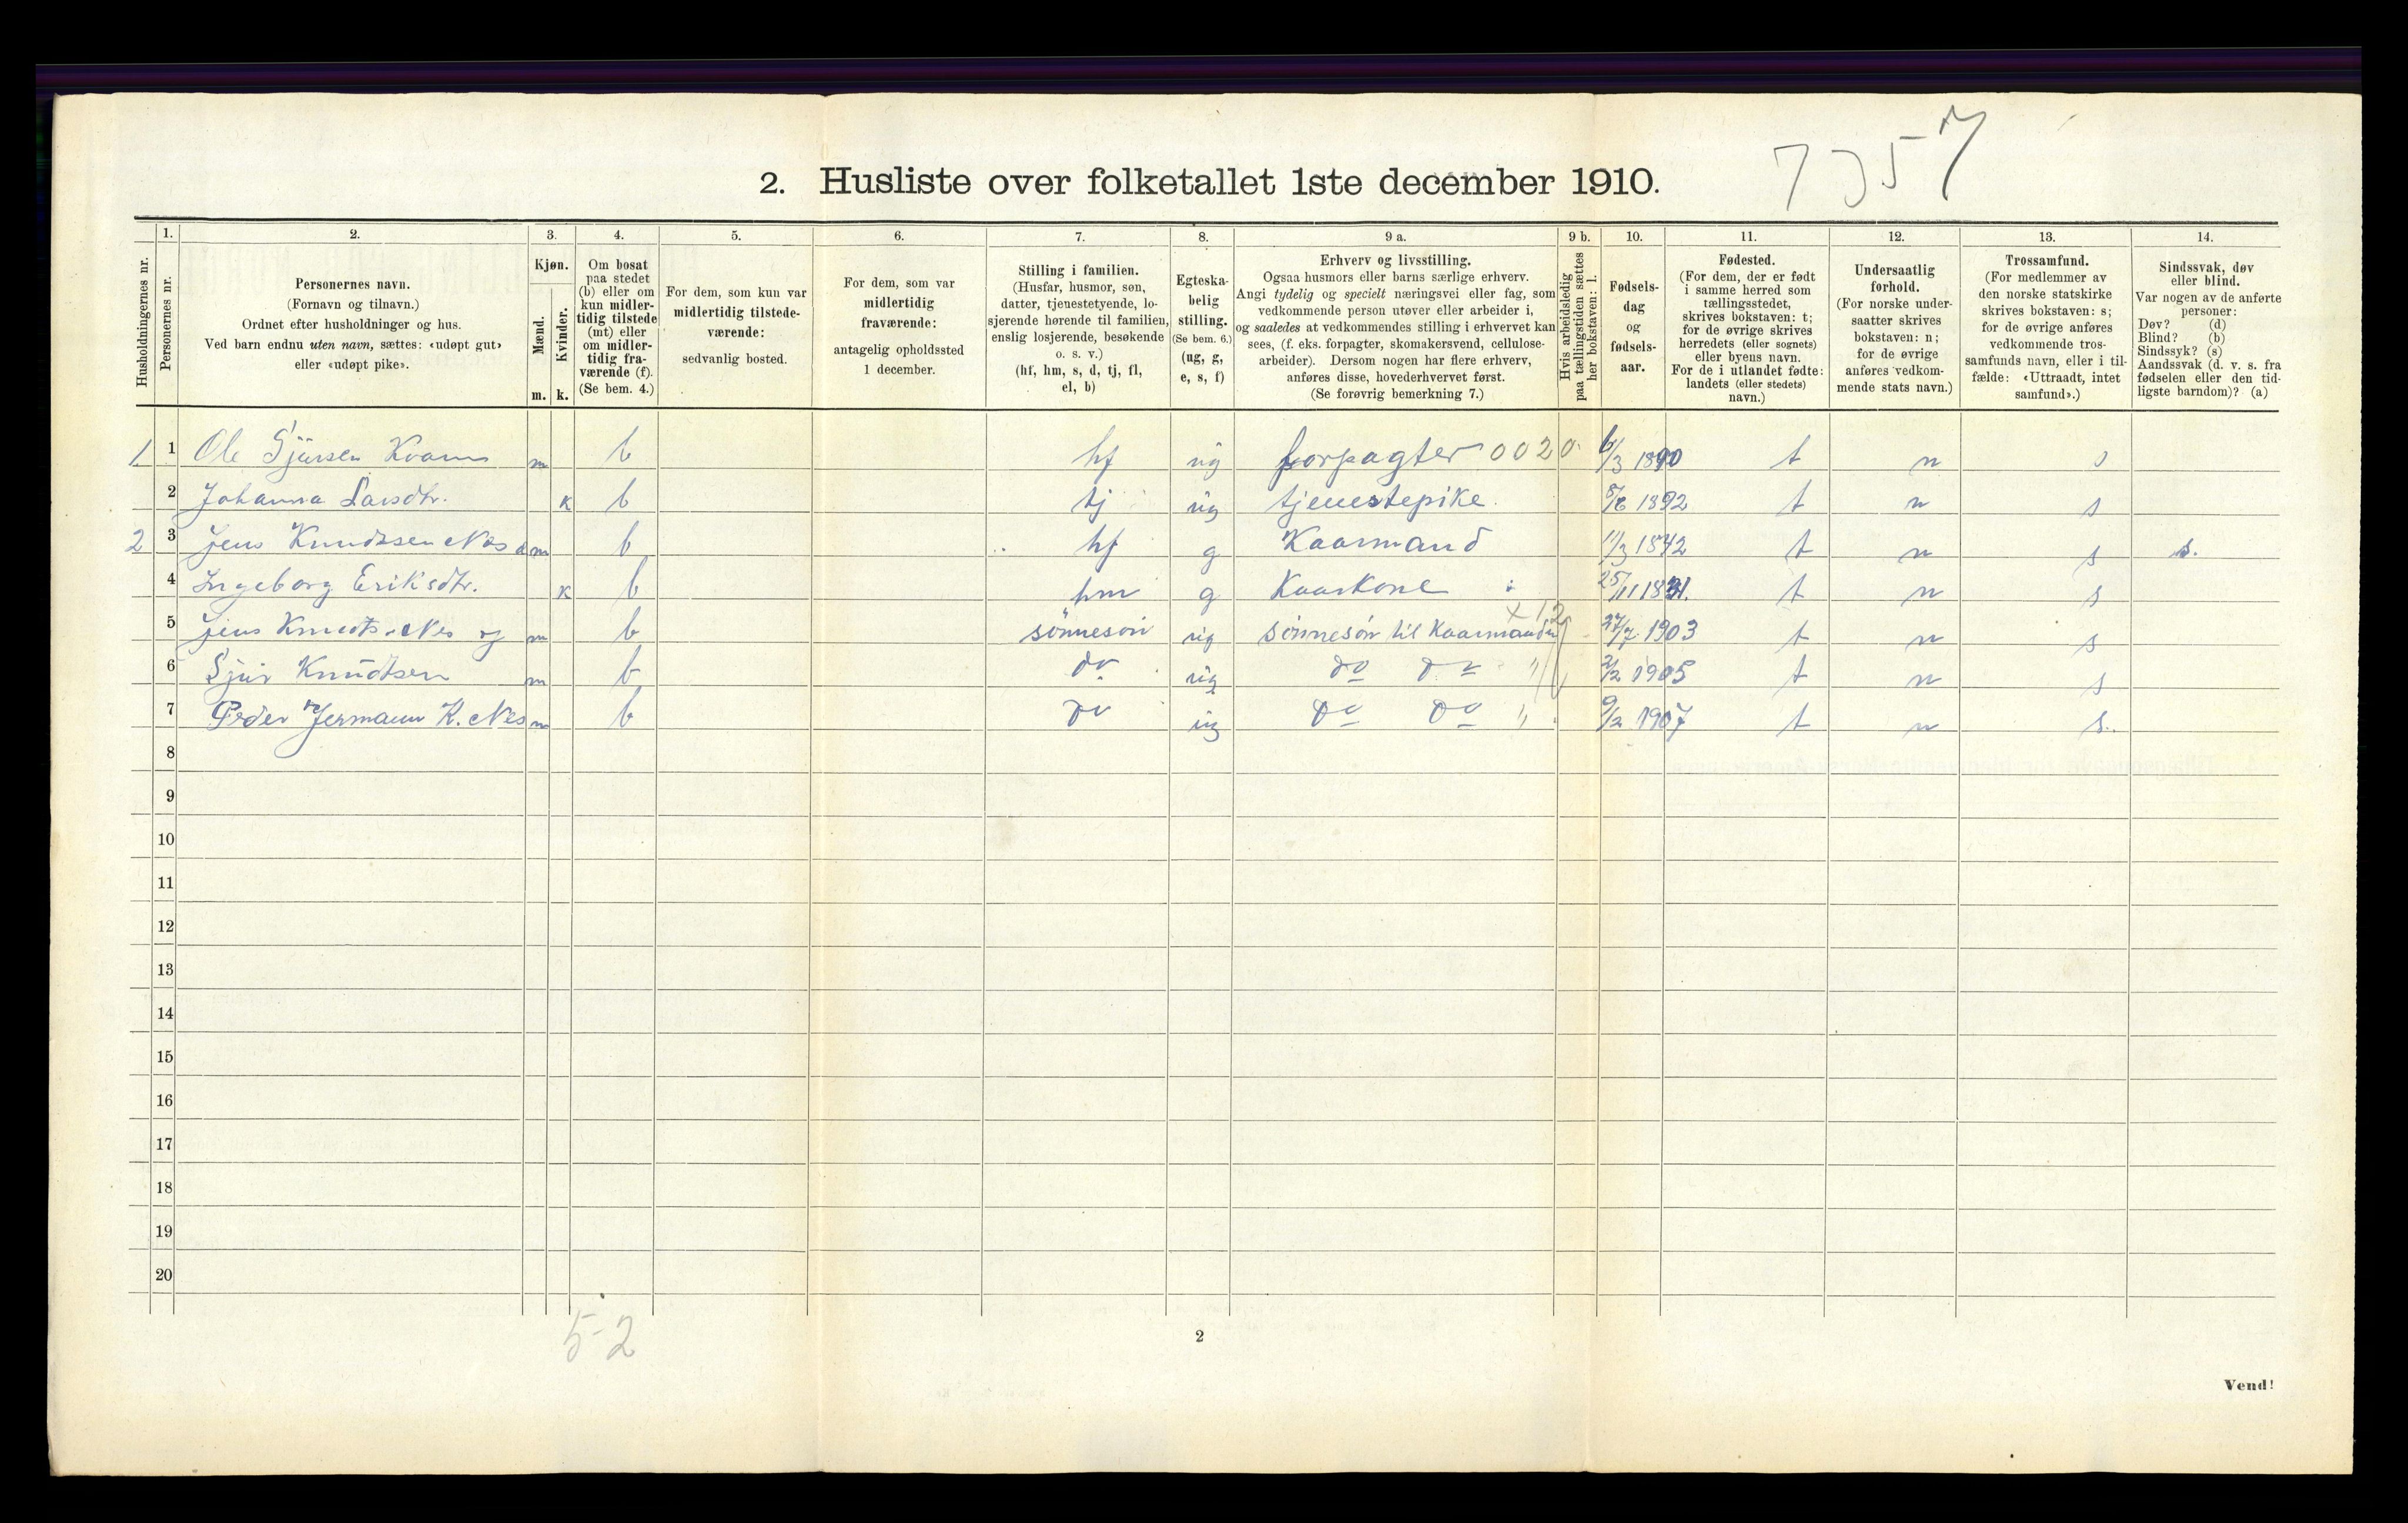 7357
2. Husliste over folketallet 1ste december 1910.
Husholdningernes nr.
1.
Personernes nr.
2.
Personernes navn.
(Fornavn og tilnavn.)
Ordnet efter husholdninger og hus.
Ved barn endnu uten navn, sættes: «udøpt gut»
eller «udøpt pike».
3.
Kjøn.
Mænd.
Kvinder.
m. k.
4.
Om bosat
paa stedet
(b) eller om
kun midler-
tidig tilstede
(mt) eller
om midler-
tidig fra-
værende (f).
(Se bem. 4.)
5.
For dem, som kun var
midlertidig tilstede-
værende:
sedvanlig bosted.
6.
For dem, som var
midlertidig
fraværende:
antagelig opholdssted
1 december.
7.
Stilling i familien.
(Husfar, husmor, søn,
datter, tjenestetyende, lo-
sjerende hørende til familien,
enslig losjerende, besøkende
o. s. v.)
(hf, hm, s, d, tj, fl,
el, b)
8.
Egteska-
belig
stilling.
(Se bem. 6.)
(ug, g,
e, s, f)
9 a.
Erhverv og livsstilling.
Ogsaa husmors eller barns særlige erhverv.
Angi tydelig og specielt næringsvei eller fag, som
vedkommende person utøver eller arbeider i,
og saaledes at vedkommendes stilling i erhvervet kan
sees, (f. eks. forpagter, skomakersvend, cellulose-
arbeider). Dersom nogen har flere erhverv,
anføres disse, hovederhvervet først.
(Se forøvrig bemerkning 7.)
9 b.
Hvis arbeidsledig
paa tællingstiden sættes
her bokstaven: l.
10.
Fødsels-
dag
og
fødsels-
aar.
11.
Fødested.
(For dem, der er født
i samme herred som
tællingsstedet,
skrives bokstaven: t;
for de øvrige skrives
herredets (eller sognets)
eller byens navn.
For de i utlandet fødte:
landets (eller stedets)
navn.)
12.
Undersaatlig
forhold.
(For norske under-
saatter skrives
bokstaven: n;
for de øvrige
anføres vedkom-
mende stats navn.)
13.
Trossamfund.
(For medlemmer av
den norske statskirke
skrives bokstaven: s;
for de øvrige anføres
vedkommende tros-
samfunds navn, eller i til-
fælde: «Uttraadt, intet
samfund».)
14.
Sindssvak, døv
eller blind.
Var nogen av de anførte
personer:
Døv? (d)
Blind? (b)
Sindssyk? (s)
Aandssvak (d. v. s. fra
fødselen eller den tid-
ligste barndom)? (a)
1. 1 Ole Sjursen Kvam m b hf ug forpagter 0020 6/3 1890 t n s
2 Johanna Larsdtr. k b tj ug tjenestepike. 1892 t n s
2 3 Jens Knudssen Nes m b hf g Kaarmand 11/3 1842 t n s
4 Ingeborg Eriksdtr. k b hm g Kaarkone 25/11 t n s
5 Jens Knudts. Nes m b sønnesøn ug sønnesøn til Kaarmanden 27/7 1903 t n s
6 Sjur Knudtsen m b do ug do do " 2/2 1905 t n s
7 Peder Hermann K. Nes m b do ug do do " 9/2 1907 t n s.
8
9
10
11
12
13
14
15
16
17
18
19
20
5-2
2
Vend!